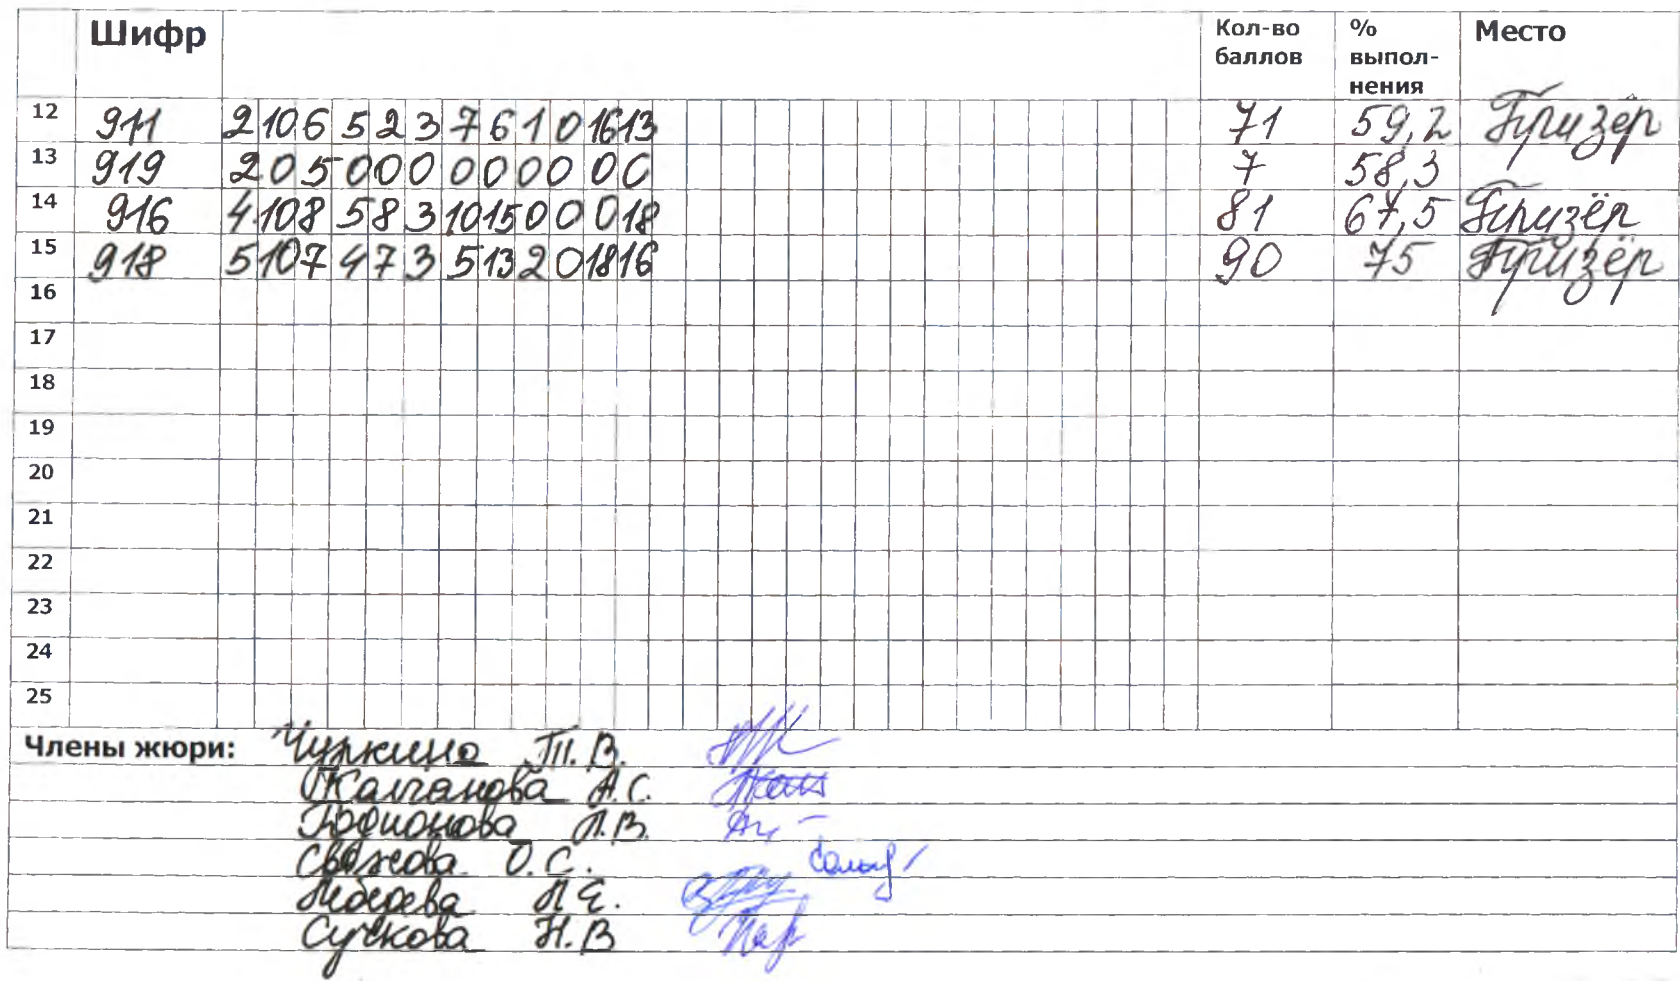 Шифр Кол-во баллов % выпол-нения Место
12 911 2 10 6 5 2 3 7 6 1 0 16 13 71 59,2 Призёр
13 919 2 0 5 0 0 0 0 0 0 0 0 0 7 58,3
14 916 4 10 8 5 8 3 10 15 0 0 0 18 81 67,5 Призёр
15 918 5 10 7 4 7 3 5 13 2 0 18 16 90 75 Призёр
16
17
18
19
20
21
22
23
24
25
Члены жюри: Чуркина Т.В.
Калганова А.С.
Родионова Л.В.
О.С.
Лебедева Л.Е.
Сучкова Н.В